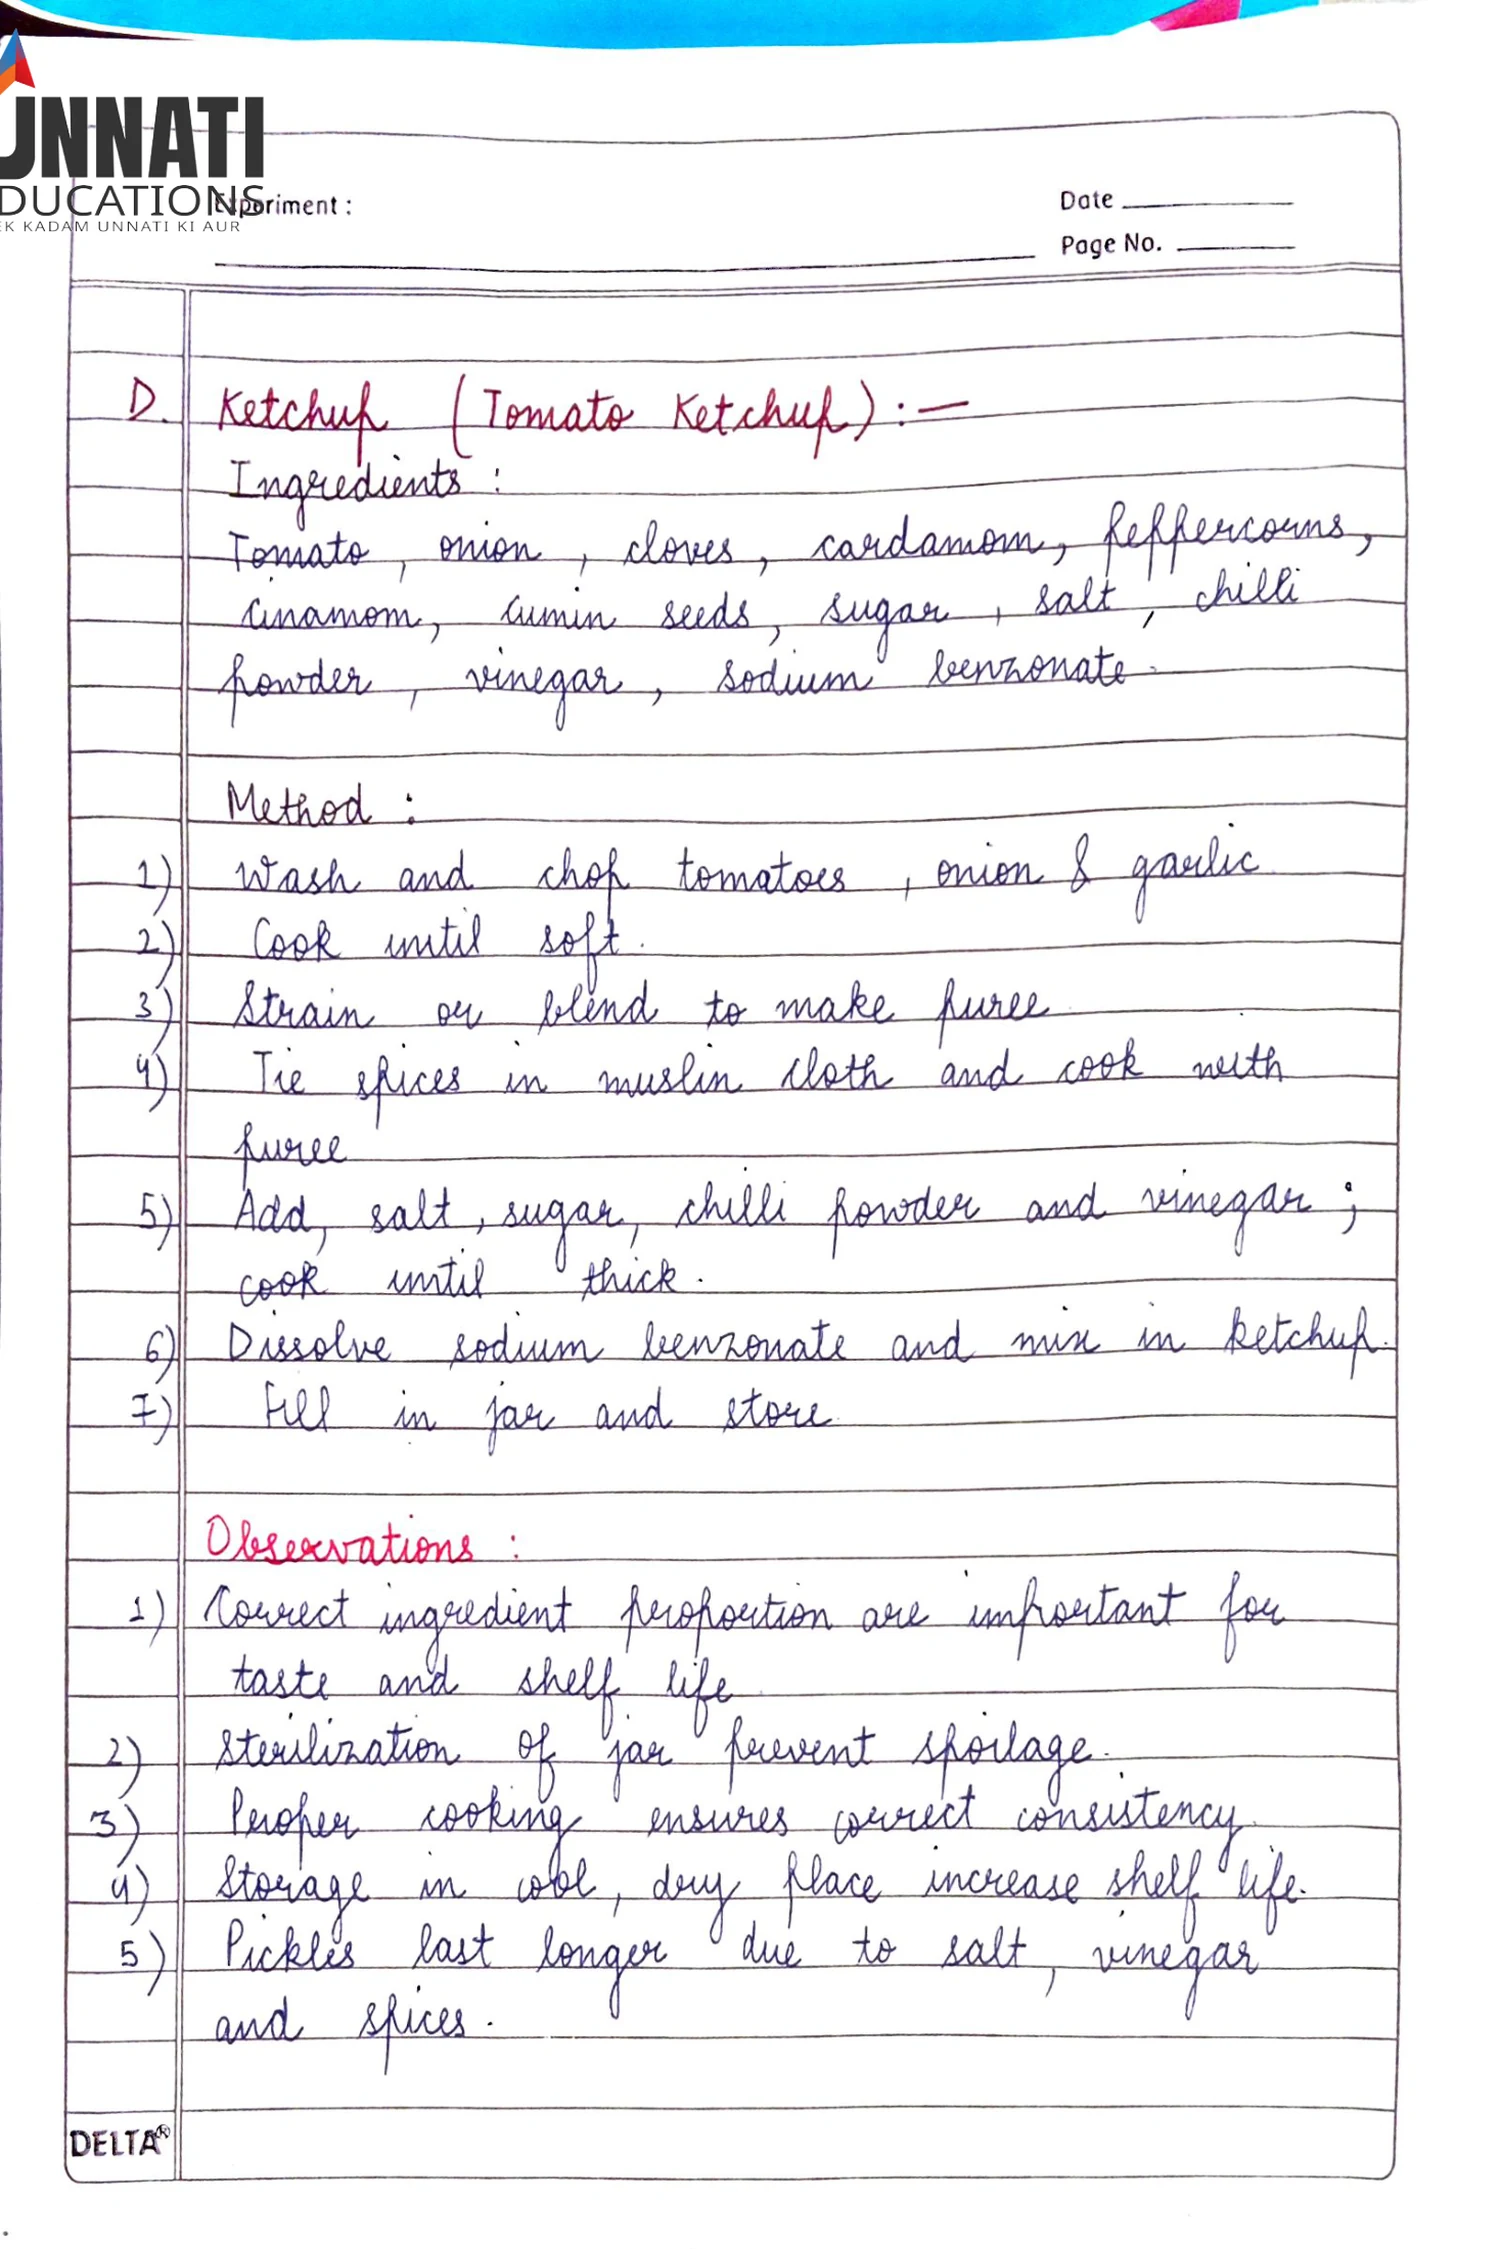 UNNATI
DUCATIONS
EK KADAM UNNATI KI AUR
Experiment :
Date
Page No.
D. Ketchup (Tomato Ketchup) :-
Ingredients :
Tomato, onion, cloves, cardamom, peppercorns,
cinamom, cumin seeds, sugar, salt, chilli
powder, vinegar, sodium benzonate.
Method :
1) Wash and chop tomatoes, onion & garlic
2) Cook until soft.
3) Strain or blend to make puree
4) Tie spices in muslin cloth and cook with
puree
5) Add, salt, sugar, chilli powder and vinegar ;
cook until thick.
6) Dissolve sodium benzonate and mix in ketchup.
7) Fill in jar and store
Observations :
1) Correct ingredient proportion are important for
taste and shelf life
2) Sterilization of jar prevent spoilage.
3) Proper cooking ensures correct consistency
4) Storage in cool, dry place increase shelf life.
5) Pickles last longer due to salt, vinegar
and spices.
DELTA®